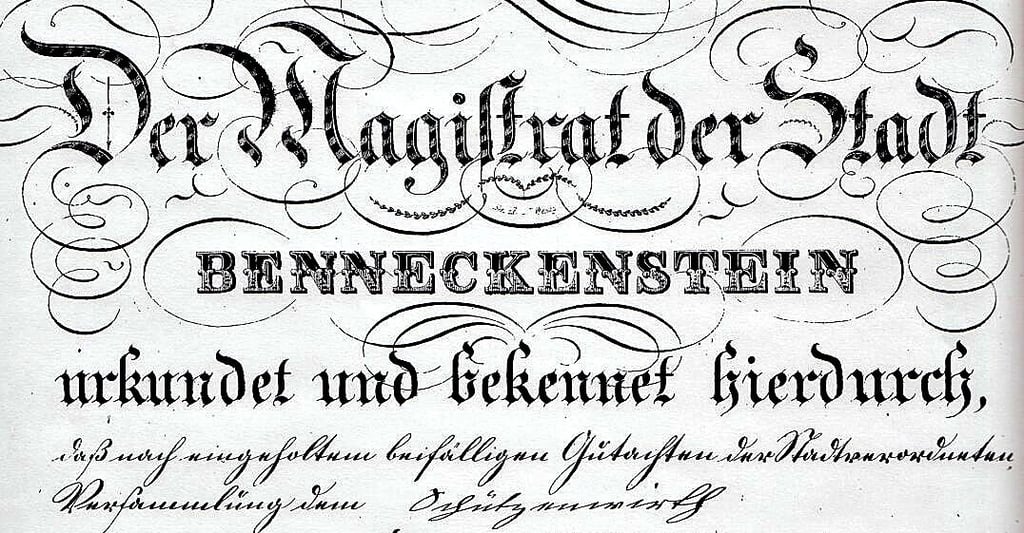 Der Magistrat der Stadt
BENNECKENSTEIN
urkundet und bekennet hierdurch,
daß nach eingeholtem beifälligen Gutachten der Stadtverordneten
Versammlung dem Schützenwirth